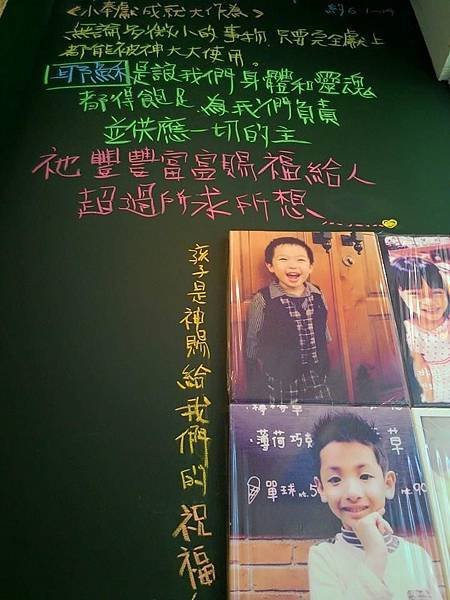 《小奉獻成就大作為》 約6:1-14
無論多微小的事物,只要完全獻上
都能被神大大使用。
耶穌是讓我們身體和靈魂
都得飽足,為我們負責
並供應一切的主
祂豐豐富富賜福給人
超過所求所想......
孩子是神賜給我們的祝福
草
薄荷巧克 草
單球nt.5 nt.90